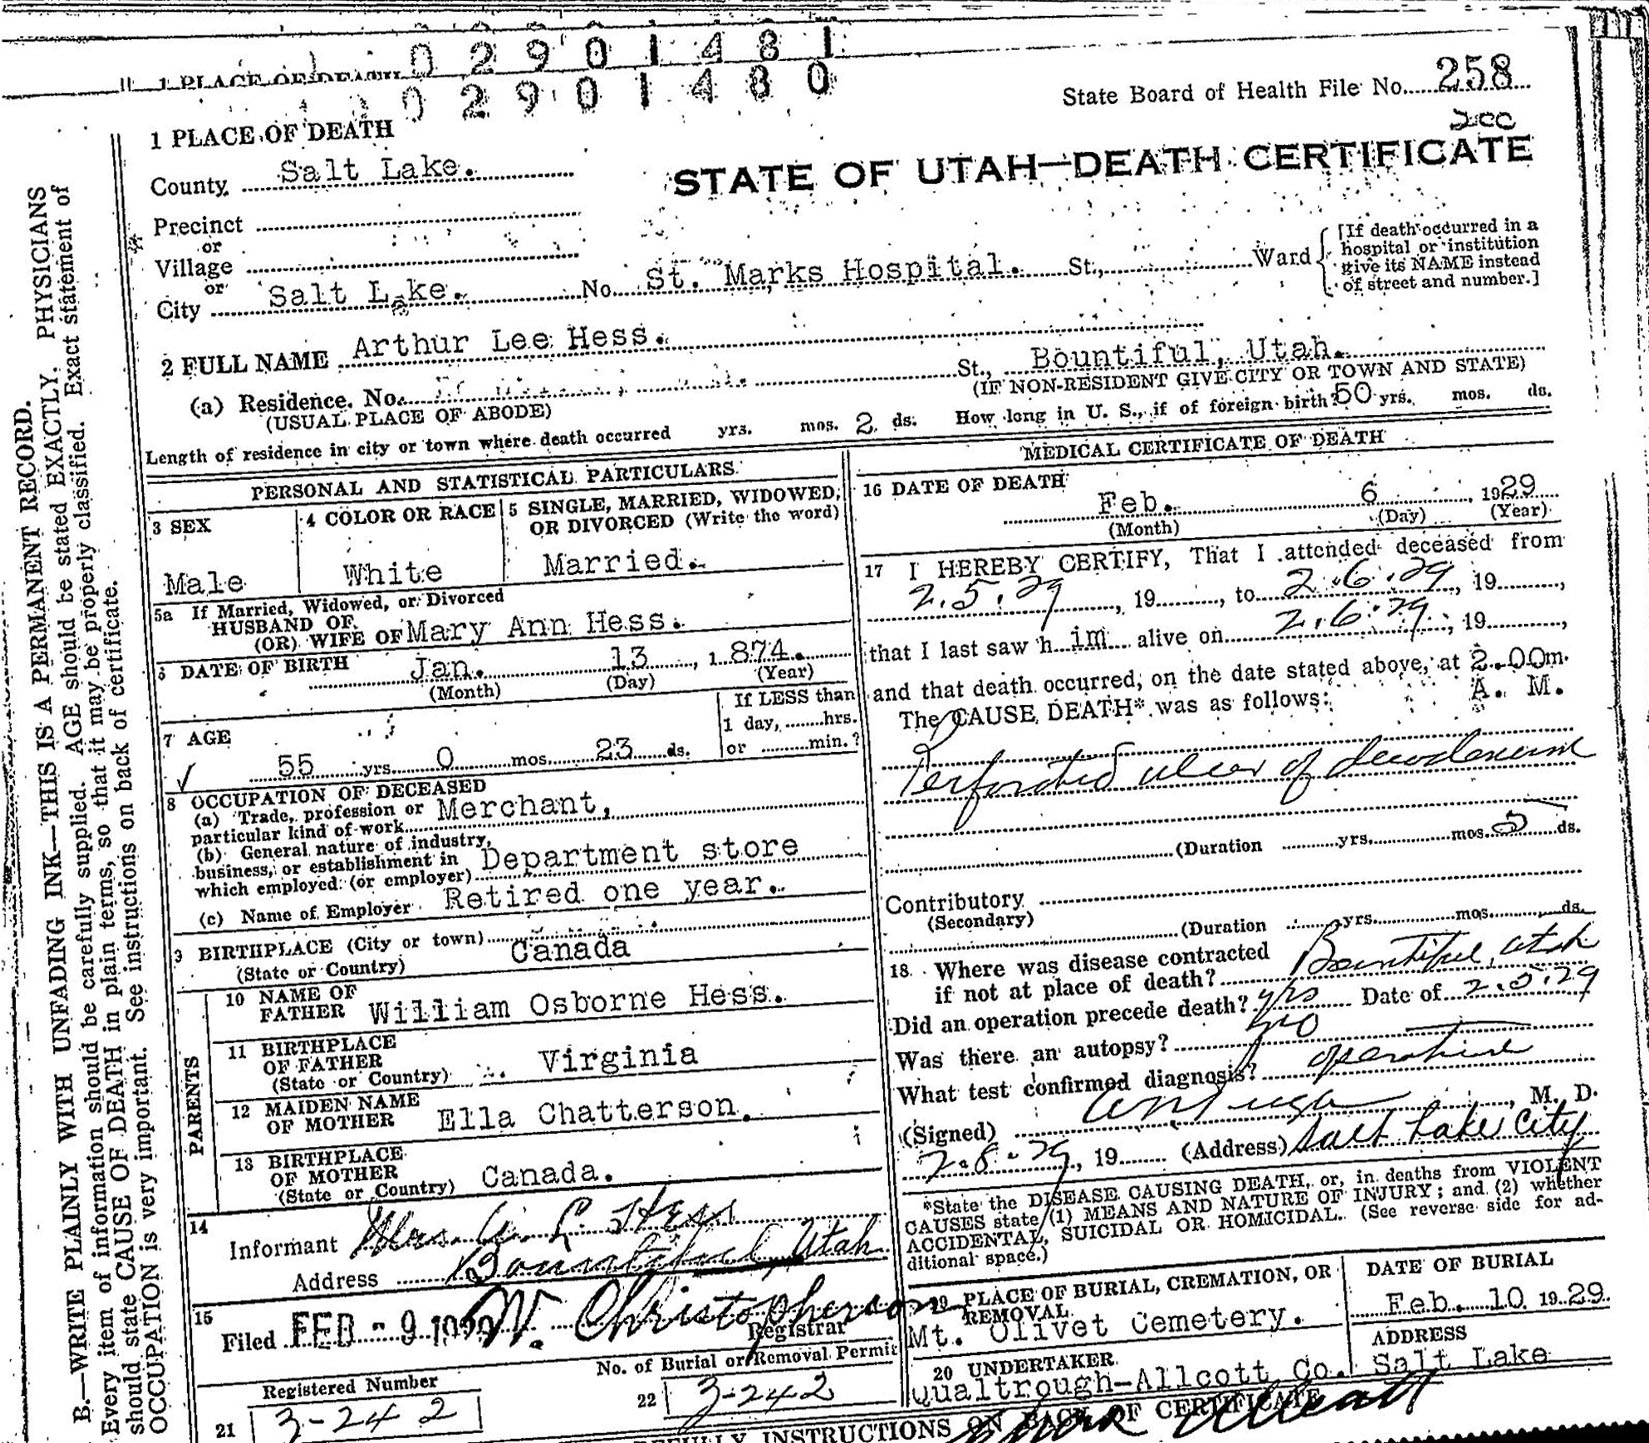 0 2 9 0 1 4 8 1
1 PLACE OF DEATH
0 2 9 0 1 4 8 0
State Board of Health File No. 258
200
1 PLACE OF DEATH
County Salt Lake.
STATE OF UTAH—DEATH CERTIFICATE
Precinct
or
Village
or
City Salt Lake. No. St. Marks Hospital. St., Ward
[If death occurred in a
hospital or institution
give its NAME instead
of street and number.]
2 FULL NAME Arthur Lee Hess.
(a) Residence. No. St., Bountiful, Utah.
(USUAL PLACE OF ABODE) (IF NON-RESIDENT GIVE CITY OR TOWN AND STATE)
Length of residence in city or town where death occurred yrs. mos. 2 ds. How long in U. S., if of foreign birth? 50 yrs. mos. ds.
PERSONAL AND STATISTICAL PARTICULARS
3 SEX
Male
4 COLOR OR RACE
White
5 SINGLE, MARRIED, WIDOWED,
OR DIVORCED (Write the word)
Married.
5a If Married, Widowed, or Divorced
HUSBAND OF
(OR) WIFE OF Mary Ann Hess.
6 DATE OF BIRTH Jan. 13, 1874.
(Month) (Day) (Year)
7 AGE
55 yrs. 0 mos. 23 ds.
If LESS than
1 day, hrs.
or min.?
8 OCCUPATION OF DECEASED
(a) Trade, profession or
particular kind of work Merchant,
(b) General nature of industry,
business, or establishment in
which employed (or employer) Department store
(c) Name of Employer Retired one year.
9 BIRTHPLACE (City or town)
(State or Country) Canada
PARENTS
10 NAME OF
FATHER William Osborne Hess.
11 BIRTHPLACE
OF FATHER
(State or Country) Virginia
12 MAIDEN NAME
OF MOTHER Ella Chatterson.
13 BIRTHPLACE
OF MOTHER
(State or Country) Canada.
14
Informant Mrs. A. L. Hess
Address Bountiful, Utah
15
Filed FEB - 9 1929 W. Christopherson
Registrar
No. of Burial or Removal Permit
Registered Number
21 3-242
22 3-242
MEDICAL CERTIFICATE OF DEATH
16 DATE OF DEATH
Feb. 6, 1929
(Month) (Day) (Year)
17 I HEREBY CERTIFY, That I attended deceased from
2.5.29, 19, to 2.6.29, 19,
that I last saw h im alive on 2.6.29, 19,
and that death occurred, on the date stated above, at 2.00m.
A. M.
The CAUSE DEATH* was as follows:
Perforated ulcer of duodenum
(Duration yrs. mos. 5 ds.
Contributory
(Secondary)
(Duration yrs. mos. ds.
18. Where was disease contracted
if not at place of death? Bountiful, Utah
Did an operation precede death? yes Date of 2.5.29
Was there an autopsy? no
What test confirmed diagnosis? operation
(Signed) , M. D.
2-8-29, 19 (Address) Salt Lake City
*State the DISEASE CAUSING DEATH, or, in deaths from VIOLENT
CAUSES state (1) MEANS AND NATURE OF INJURY; and (2) whether
ACCIDENTAL, SUICIDAL OR HOMICIDAL. (See reverse side for ad-
ditional space.)
19 PLACE OF BURIAL, CREMATION, OR
REMOVAL
Mt. Olivet Cemetery.
DATE OF BURIAL
Feb. 10 1929.
20 UNDERTAKER
Qualtrough-Allcott Co.
ADDRESS
Salt Lake
INSTRUCTIONS ON BACK OF CERTIFICATE
B.—WRITE PLAINLY WITH UNFADING INK—THIS IS A PERMANENT RECORD.
Every item of information should be carefully supplied. AGE should be stated EXACTLY. PHYSICIANS
should state CAUSE OF DEATH in plain terms, so that it may be properly classified. Exact statement of
OCCUPATION is very important. See instructions on back of certificate.